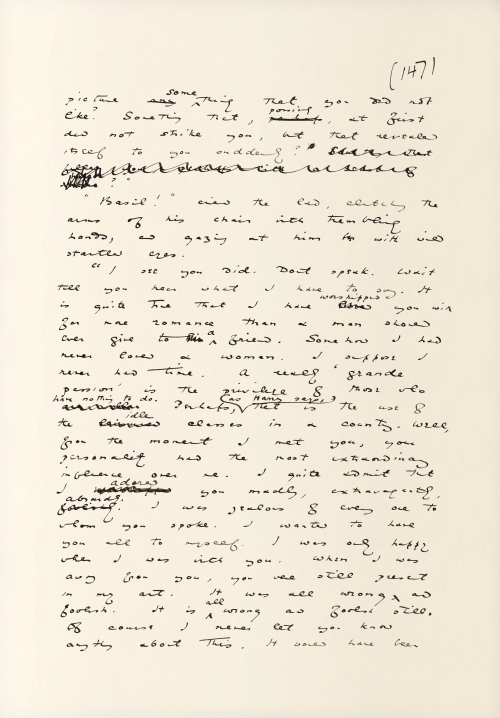 (147)
some
picture any thing that you did not
like? Something that, possibly, at first
did not strike you, but that revealed
itself to you suddenly?"
"Basil!" cried the lad, clutching the
arms of his chair with trembling
hands, and gazing at him with wild
startled eyes.
"I see you did. Don't speak. Wait
till you hear what I have to say. It
worshipped
is quite true that I have you with
far more romance than a man should
ever give to a friend. Somehow I had
never loved a woman. I suppose I
never had time. A really 'grande
passion' is the privilege of those who
have nothing to do. (as Harry says,)
Perhaps, that is the use of
idle
the classes in a country. Well,
from the moment I met you, your
personality had the most extraordinary
influence over me. I quite admit that
adored
I you madly, extravagantly,
absurdly.
foolishly. I was jealous of every one to
whom you spoke. I wanted to have
you all to myself. I was only happy
when I was with you. When I was
away from you, you were still present
in my art. It was all wrong and
all
foolish. It is wrong and foolish still.
Of course I never let you know
anything about this. It would have been